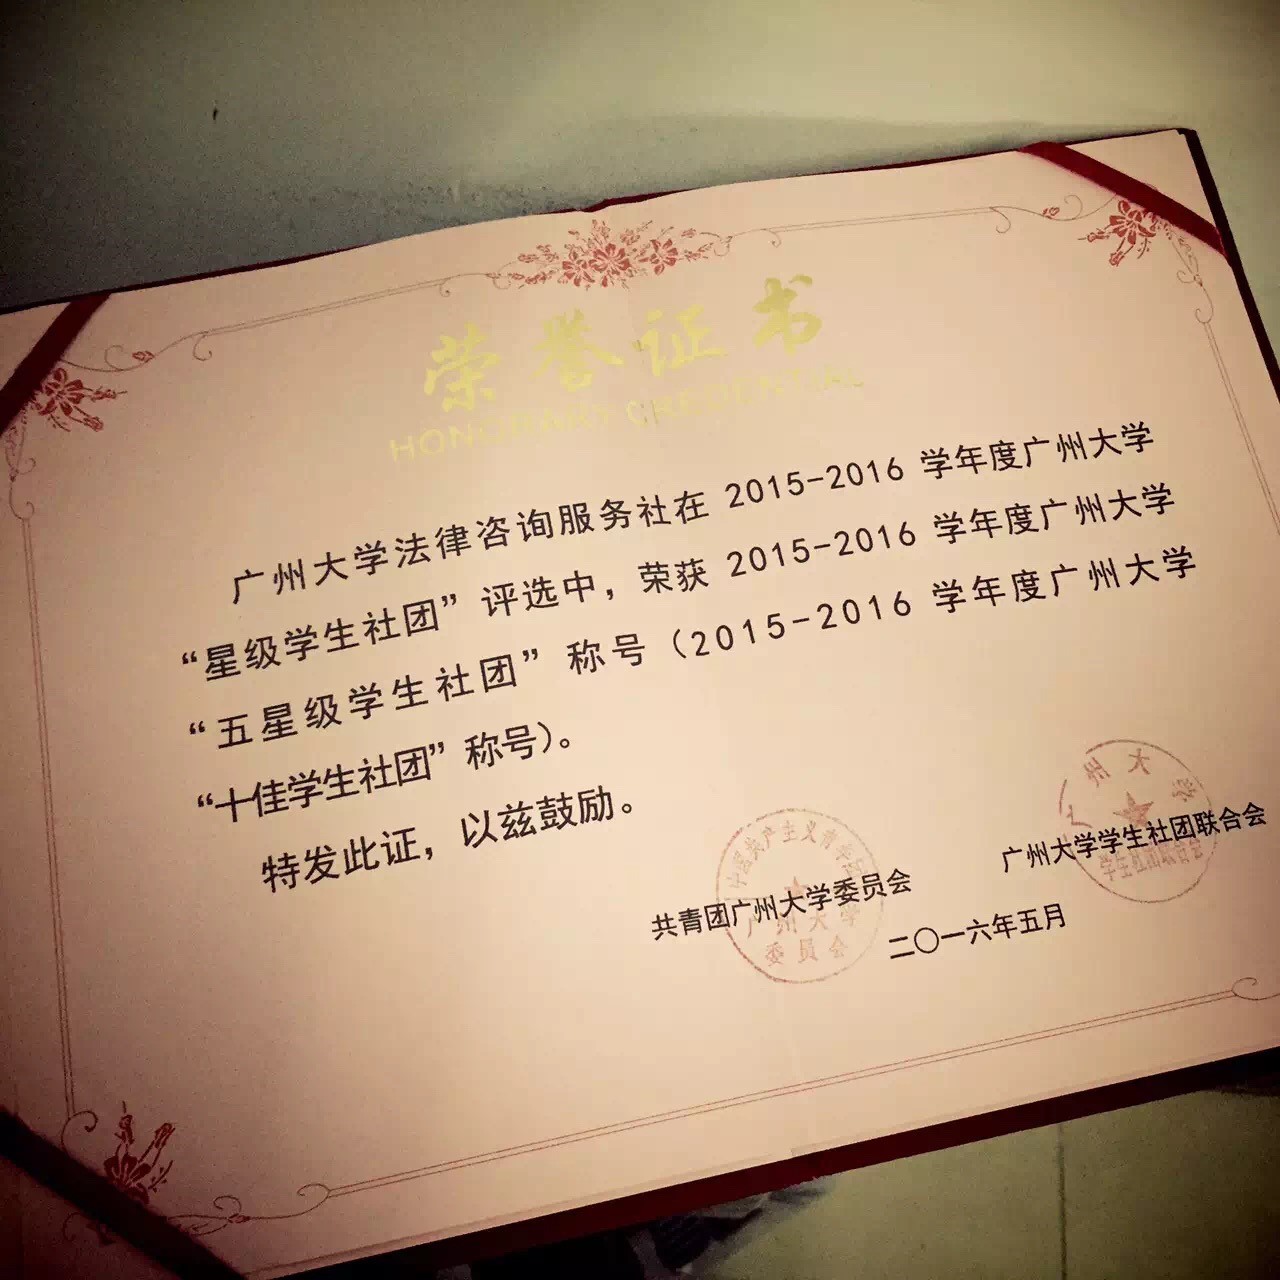 荣誉证书
HONORARY CREDENTIAL
广州大学法律咨询服务社在 2015-2016 学年度广州大学
“星级学生社团”评选中，荣获 2015-2016 学年度广州大学
“五星级学生社团”称号（2015-2016 学年度广州大学
“十佳学生社团”称号）。
特发此证，以兹鼓励。
共青团广州大学委员会
广州大学学生社团联合会
二〇一六年五月
中国共产主义青年团
广州大学
委员会
广州大学
学生社团联合会